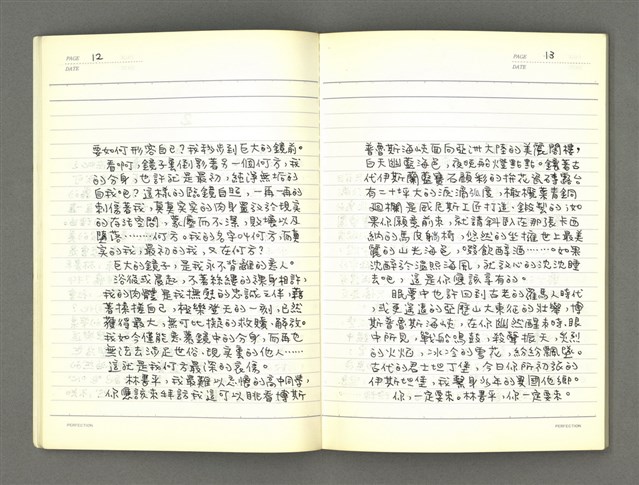 PAGE 12
DATE
要如何形容自己？我移步到巨大的鏡前。
看啊，鏡子裏倒影著另一個何方，我
的分身，也許記是最初，純淨無垢的
自我吧？這樣的臨鏡自照，一再一再的
刺傷著我，莫莫實實的肉身置放於現實
的存活空間，蒙塵而不潔，毀壞以及
墮落………何方。我的名字叫何方，而真
實的我，最初的我，又在何方？
巨大的鏡子，是我永不背離的戀人。
浴後或晨起，不著絲縷的裸身相許，
我的肉體是我撫慰的忠誠主体，藉
著搓揉自己，極樂登天的一刻，已然
獲得最大，無可比擬的救贖、解放。
我如今僅能意慕鏡中的分身，而再也
無法去滿足世俗、現實裏的他人……
這就是我何方最深的哀傷。
林書平，我最難以忘懷的高中同學，
你應該來拜訪我這可以眺看博斯
PERFECTION
PAGE 13
DATE
普魯斯海峽面向亞洲大陸的美麗閣樓，
白天幽藍海色，夜晚船燈點點。鑲著古
代伊斯蘭藍寶石顏彩的拼花瓷磚露台
有二十坪大的波濤弧度，橄欖葉青銅
迴欄是威尼斯工匠打造、鍛製的；如
果你願意前來，就請斜臥在那張卡西
納的馬皮躺椅，悠然的坐擁世上最美
麗的山光海色，啜飲醇酒……。如果
沈醉於溫熙海風，就放心的沈沈睡
去吧，這是你應該享有的。
眼夢中也許回到古老的羅馬人時代，
或更遙遠的亞歷山大東征的壯舉，博
斯普魯斯海峽，在你幽然醒來時，眼
中所見，戰船鳴鼓，殺聲振天，炙烈
的火焰，冰冷的雪花，紛紛飄盛。
古代的君士坦丁堡，今日你所初抵的
伊斯坦堡，我隻身少年的異國他鄉。
你，一定要來。林書平，你一定要來。
PERFECTION